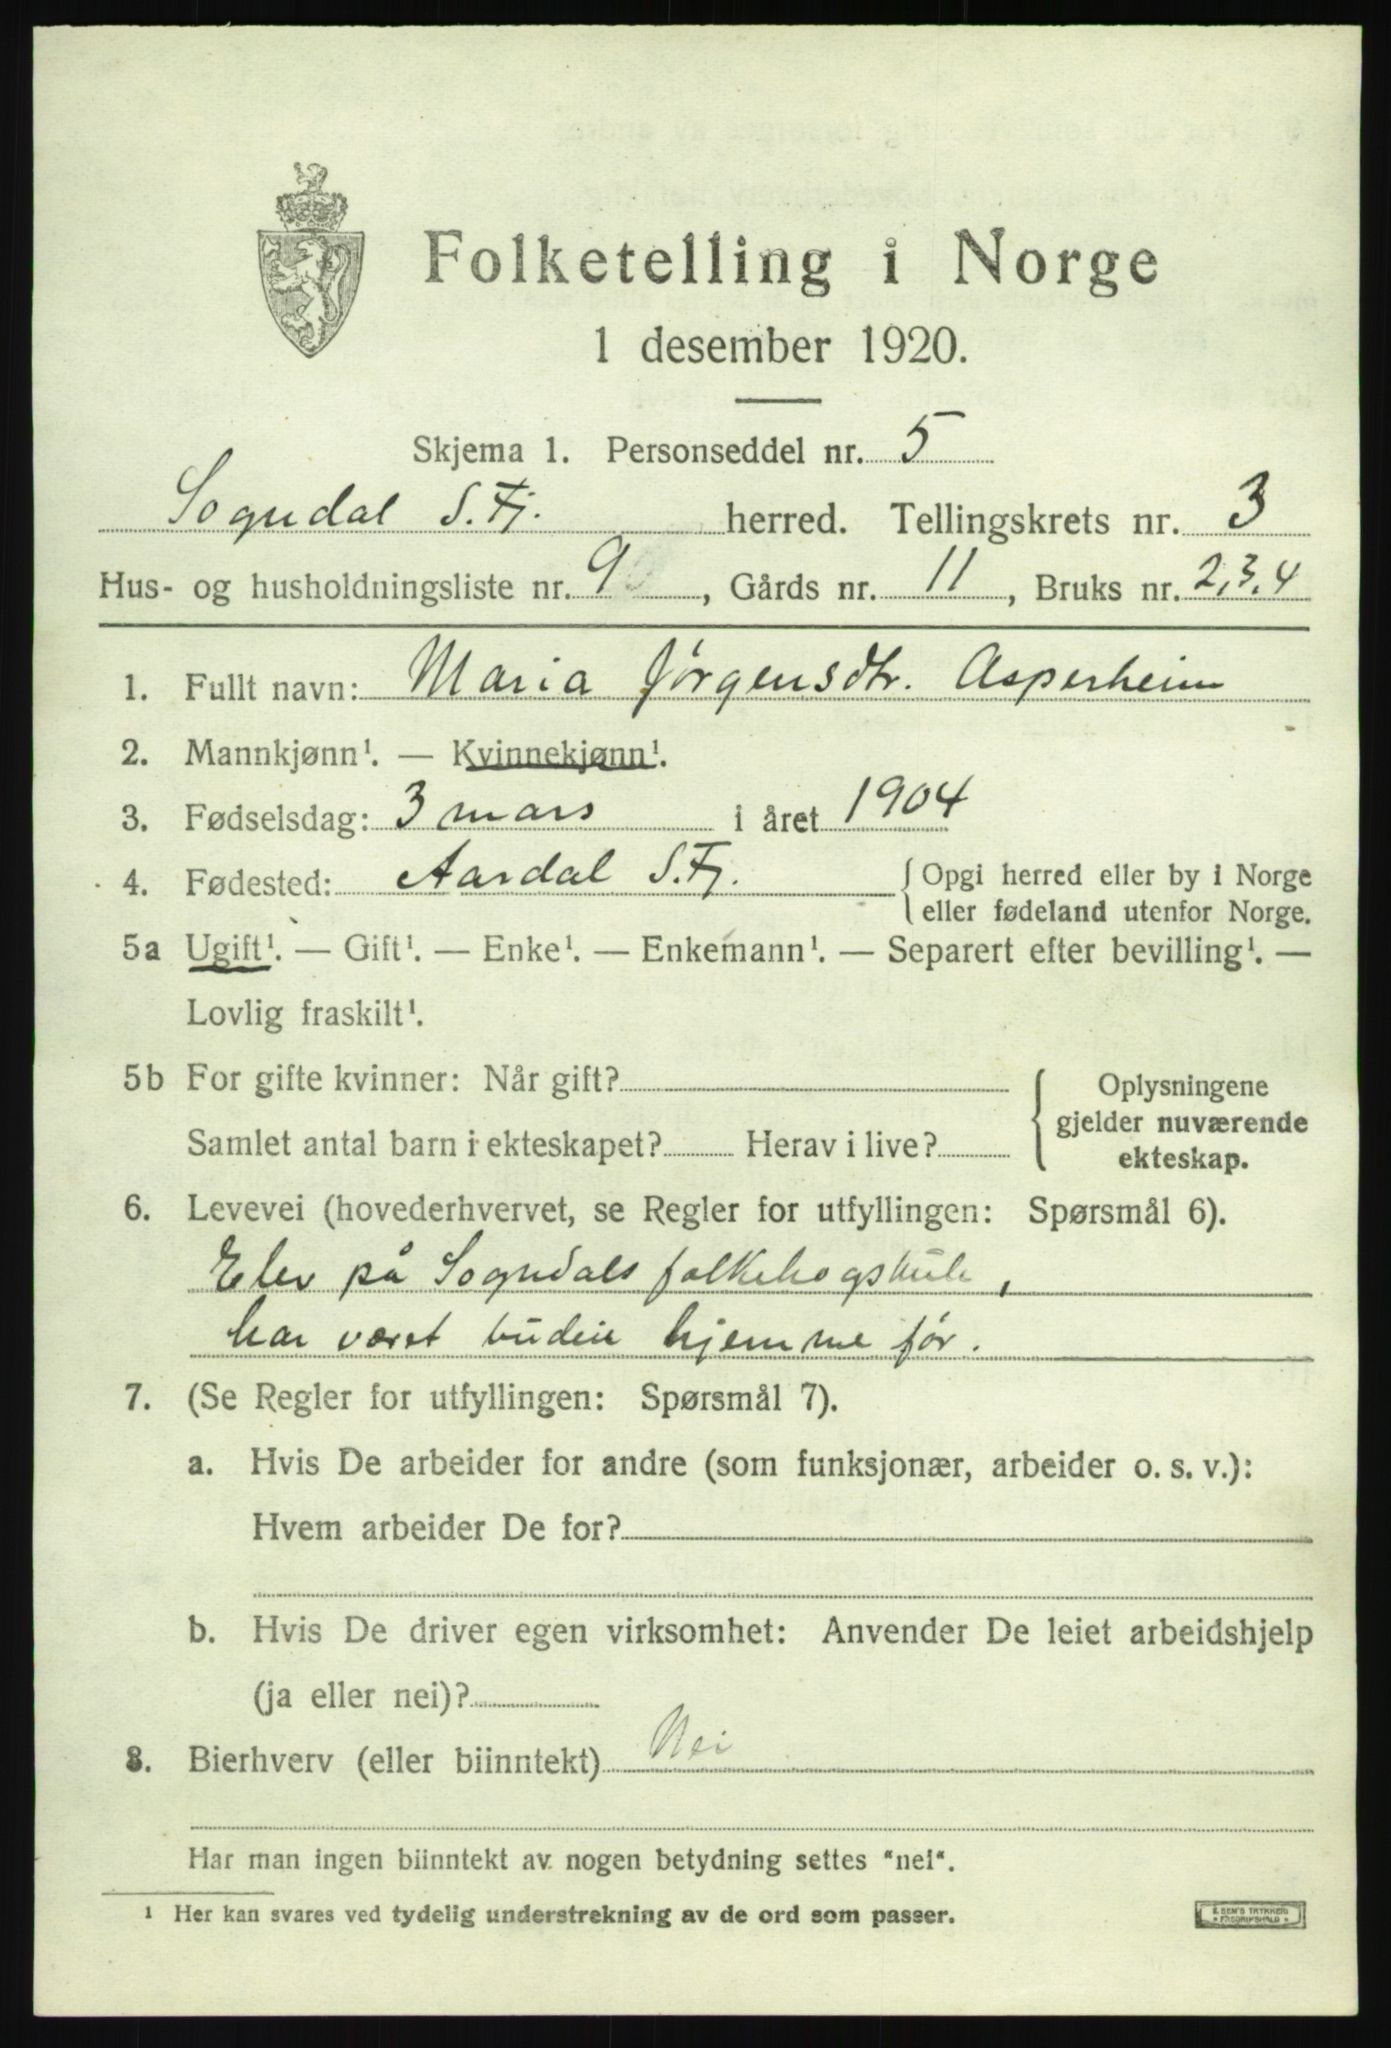 Folketelling i Norge
1 desember 1920.
Skjema 1. Personseddel nr. 5
Sogndal S.Fj. herred. Tellingskrets nr. 3
Hus- og husholdningsliste nr. 9, Gårds nr. 11, Bruks nr. 2,3,4
1. Fullt navn: Maria Jørgensdtr. Asperheim
2. Mannkjønn¹. — Kvinnekjønn¹.
3. Fødselsdag: 3 mars i året 1904
4. Fødested: Aardal S.Fj. { Opgi herred eller by i Norge
eller fødeland utenfor Norge.
5a Ugift¹. — Gift¹. — Enke¹. — Enkemann¹. — Separert efter bevilling¹. —
Lovlig fraskilt¹.
5b For gifte kvinner: Når gift?
Samlet antal barn i ekteskapet? Herav i live?
Oplysningene
gjelder nuværende
ekteskap.
6. Levevei (hovederhvervet, se Regler for utfyllingen: Spørsmål 6).
Elev på Sogndals folkehogskule,
har været budeie hjemme før.
7. (Se Regler for utfyllingen: Spørsmål 7).
a. Hvis De arbeider for andre (som funksjonær, arbeider o. s. v.):
Hvem arbeider De for?
b. Hvis De driver egen virksomhet: Anvender De leiet arbeidshjelp
(ja eller nei)?
8. Bierhverv (eller biinntekt) Nei
Har man ingen biinntekt av nogen betydning settes "nei".
¹ Her kan svares ved tydelig understrekning av de ord som passer.